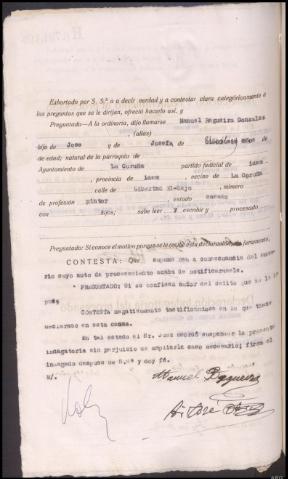 Exhortado por S. Sª a a decir verdad y a contestar clara categóricamente á
las preguntas que se le dirijan, ofreció hacerlo así, y
Preguntado—A la ordinaria, dijo llamarse Manuel Regueira Gonzalez
(alias)
hijo de Jose y de Josefa, de años
de edad; natural de la parroquia de
Ayuntamiento de La Coruña partido judicial de idem
, provincia de idem, vecino de La Coruña
calle de número
de profesión pintor estado casado
con hijos; sabe leer y escribir y procesado
Preguntado: Si conoce el motivo porque se le recibe esta declaración
CONTESTA: Que supone sea a consecuencia del suma-
rio cuyo auto de procesamiento acaba de notificarsele.
PREGUNTADO: Si se confiesa autor del delito que se le im
puta
CONTESTA negativamente ratificandose en lo que tiene
declarado en esta causa.
En tal estado el Sr. Juez acordó suspender la presente
indagatoria sin perjuicio de ampliarla caso necesario; firma el
inculpado despues de S.Sª y doy fé.
Manuel Regueira